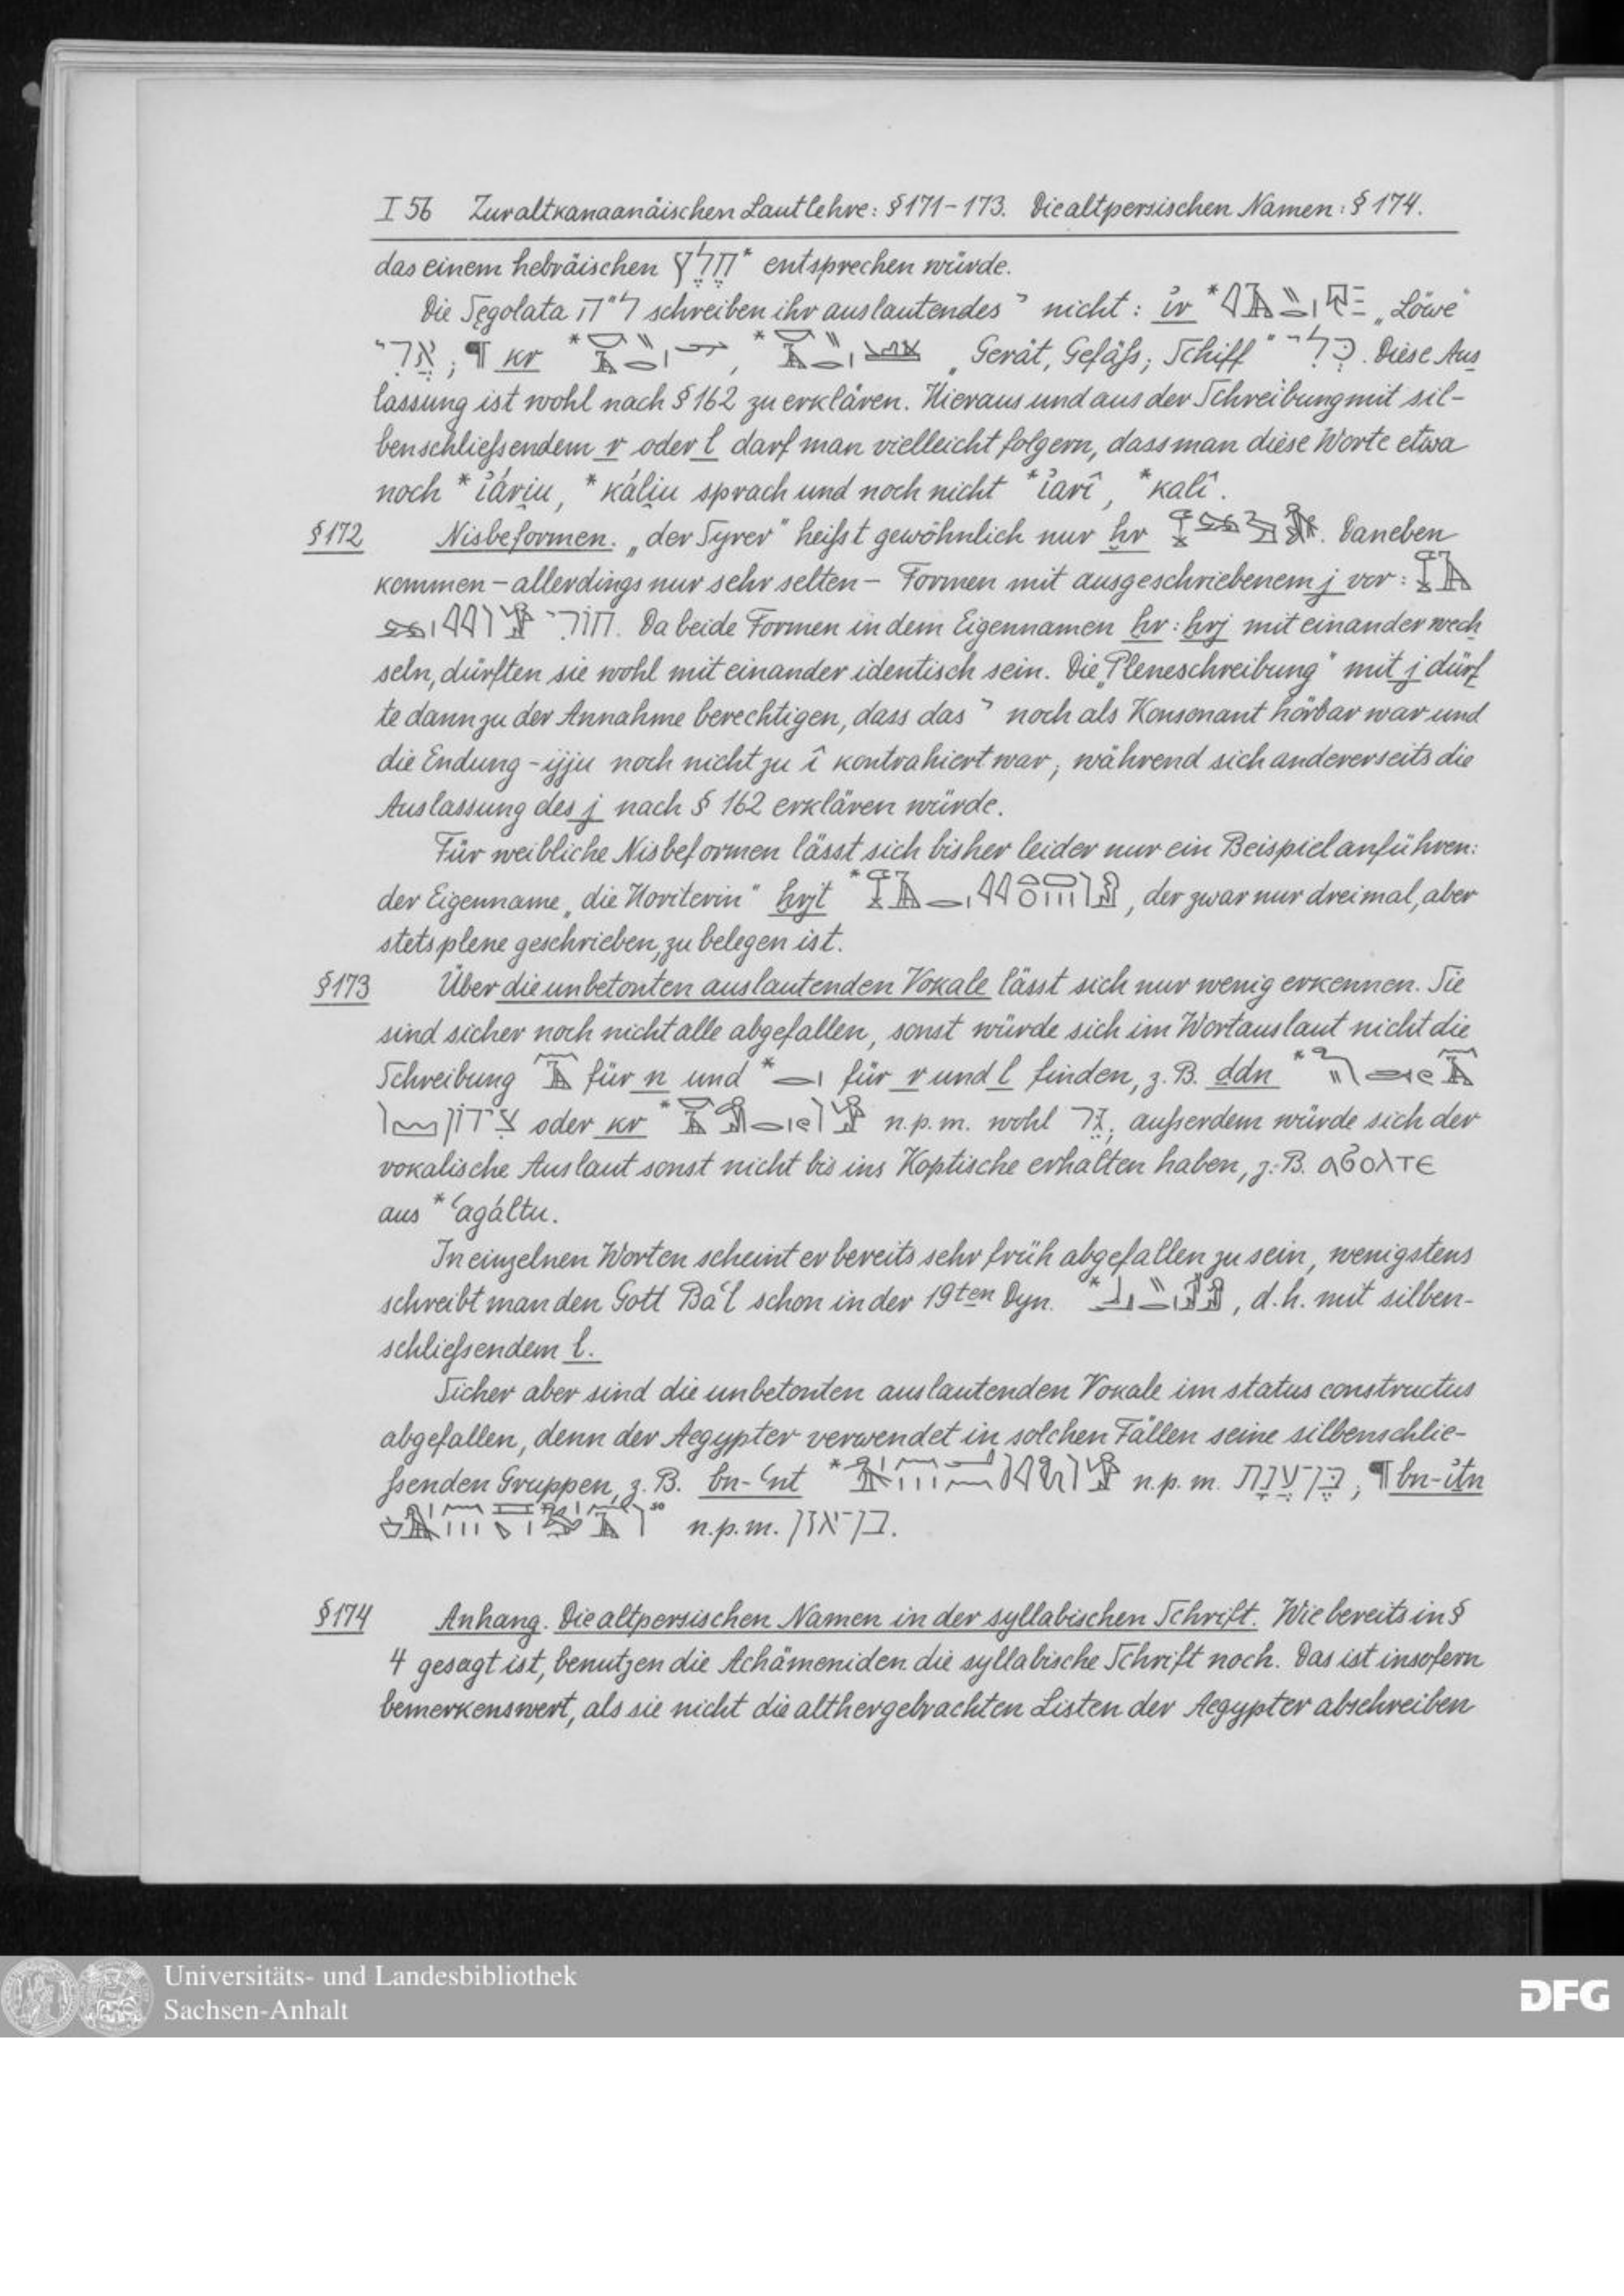 I 56 Zur altkanaanäischen Lautlehre: § 171-173. Die altpersischen Namen: § 174.
das einem hebräischen חֶלֶץ* entsprechen würde.
Die Segolata ל״ה schreiben ihr auslautendes י nicht: i͗r * „Löwe"
אֲרִי; ¶ kr * , * „Gerät, Gefäſs; Schiff" כְּלִי. Diese Aus
lassung ist wohl nach § 162 zu erklären. Hieraus und aus der Schreibung mit sil-
benschlieſsendem r oder l darf man vielleicht folgern, dass man diese Worte etwa
noch *i͗ári̯u, *káli̯u sprach und noch nicht *i͗arî, *kalî.
§ 172 Nisbeformen. „der Syrer" heiſst gewöhnlich nur ḫr . Daneben
kommen – allerdings nur sehr selten – Formen mit ausgeschriebenem j vor:
חורי. Da beide Formen in dem Eigennamen ḫr : ḫrj mit einander wech
seln, dürften sie wohl mit einander identisch sein. Die „Pleneschreibung" mit j dürf
te dann zu der Annahme berechtigen, dass das י noch als Konsonant hörbar war und
die Endung -ijju noch nicht zu î kontrahiert war, während sich andererseits die
Auslassung des j nach § 162 erklären würde.
Für weibliche Nisbeformen lässt sich bisher leider nur ein Beispiel anführen:
der Eigenname „die Horiterin" ḫrjt * , der zwar nur dreimal, aber
stets plene geschrieben, zu belegen ist.
§ 173 Über die unbetonten auslautenden Vokale lässt sich nur wenig erkennen. Sie
sind sicher noch nicht alle abgefallen, sonst würde sich im Wortauslaut nicht die
Schreibung für n und * für r und l finden, z. B. ḏdn *
צידון oder kr * n.p.m. wohl גֵּר; auſserdem würde sich der
vokalische Auslaut sonst nicht bis ins Koptische erhalten haben, z. B. ⲁϭⲟⲗⲧⲉ
aus *ʿagáltu.
In einzelnen Worten scheint er bereits sehr früh abgefallen zu sein, wenigstens
schreibt man den Gott Baʿl schon in der 19ten Dyn. * , d. h. mit silben-
schlieſsendem l.
Sicher aber sind die unbetonten auslautenden Vokale im status constructus
abgefallen, denn der Aegypter verwendet in solchen Fällen seine silbenschlie-
ſsenden Gruppen, z. B. bn-ʿnt * n.p.m. בֶּן־עֲנָת; ¶ bn-i͗tn
n.p.m. בן־אזן.
§ 174 Anhang. Die altpersischen Namen in der syllabischen Schrift. Wie bereits in §
4 gesagt ist, benutzen die Achämeniden die syllabische Schrift noch. Das ist insofern
bemerkenswert, als sie nicht die althergebrachten Listen der Aegypter abschreiben
Universitäts- und Landesbibliothek
Sachsen-Anhalt
DFG